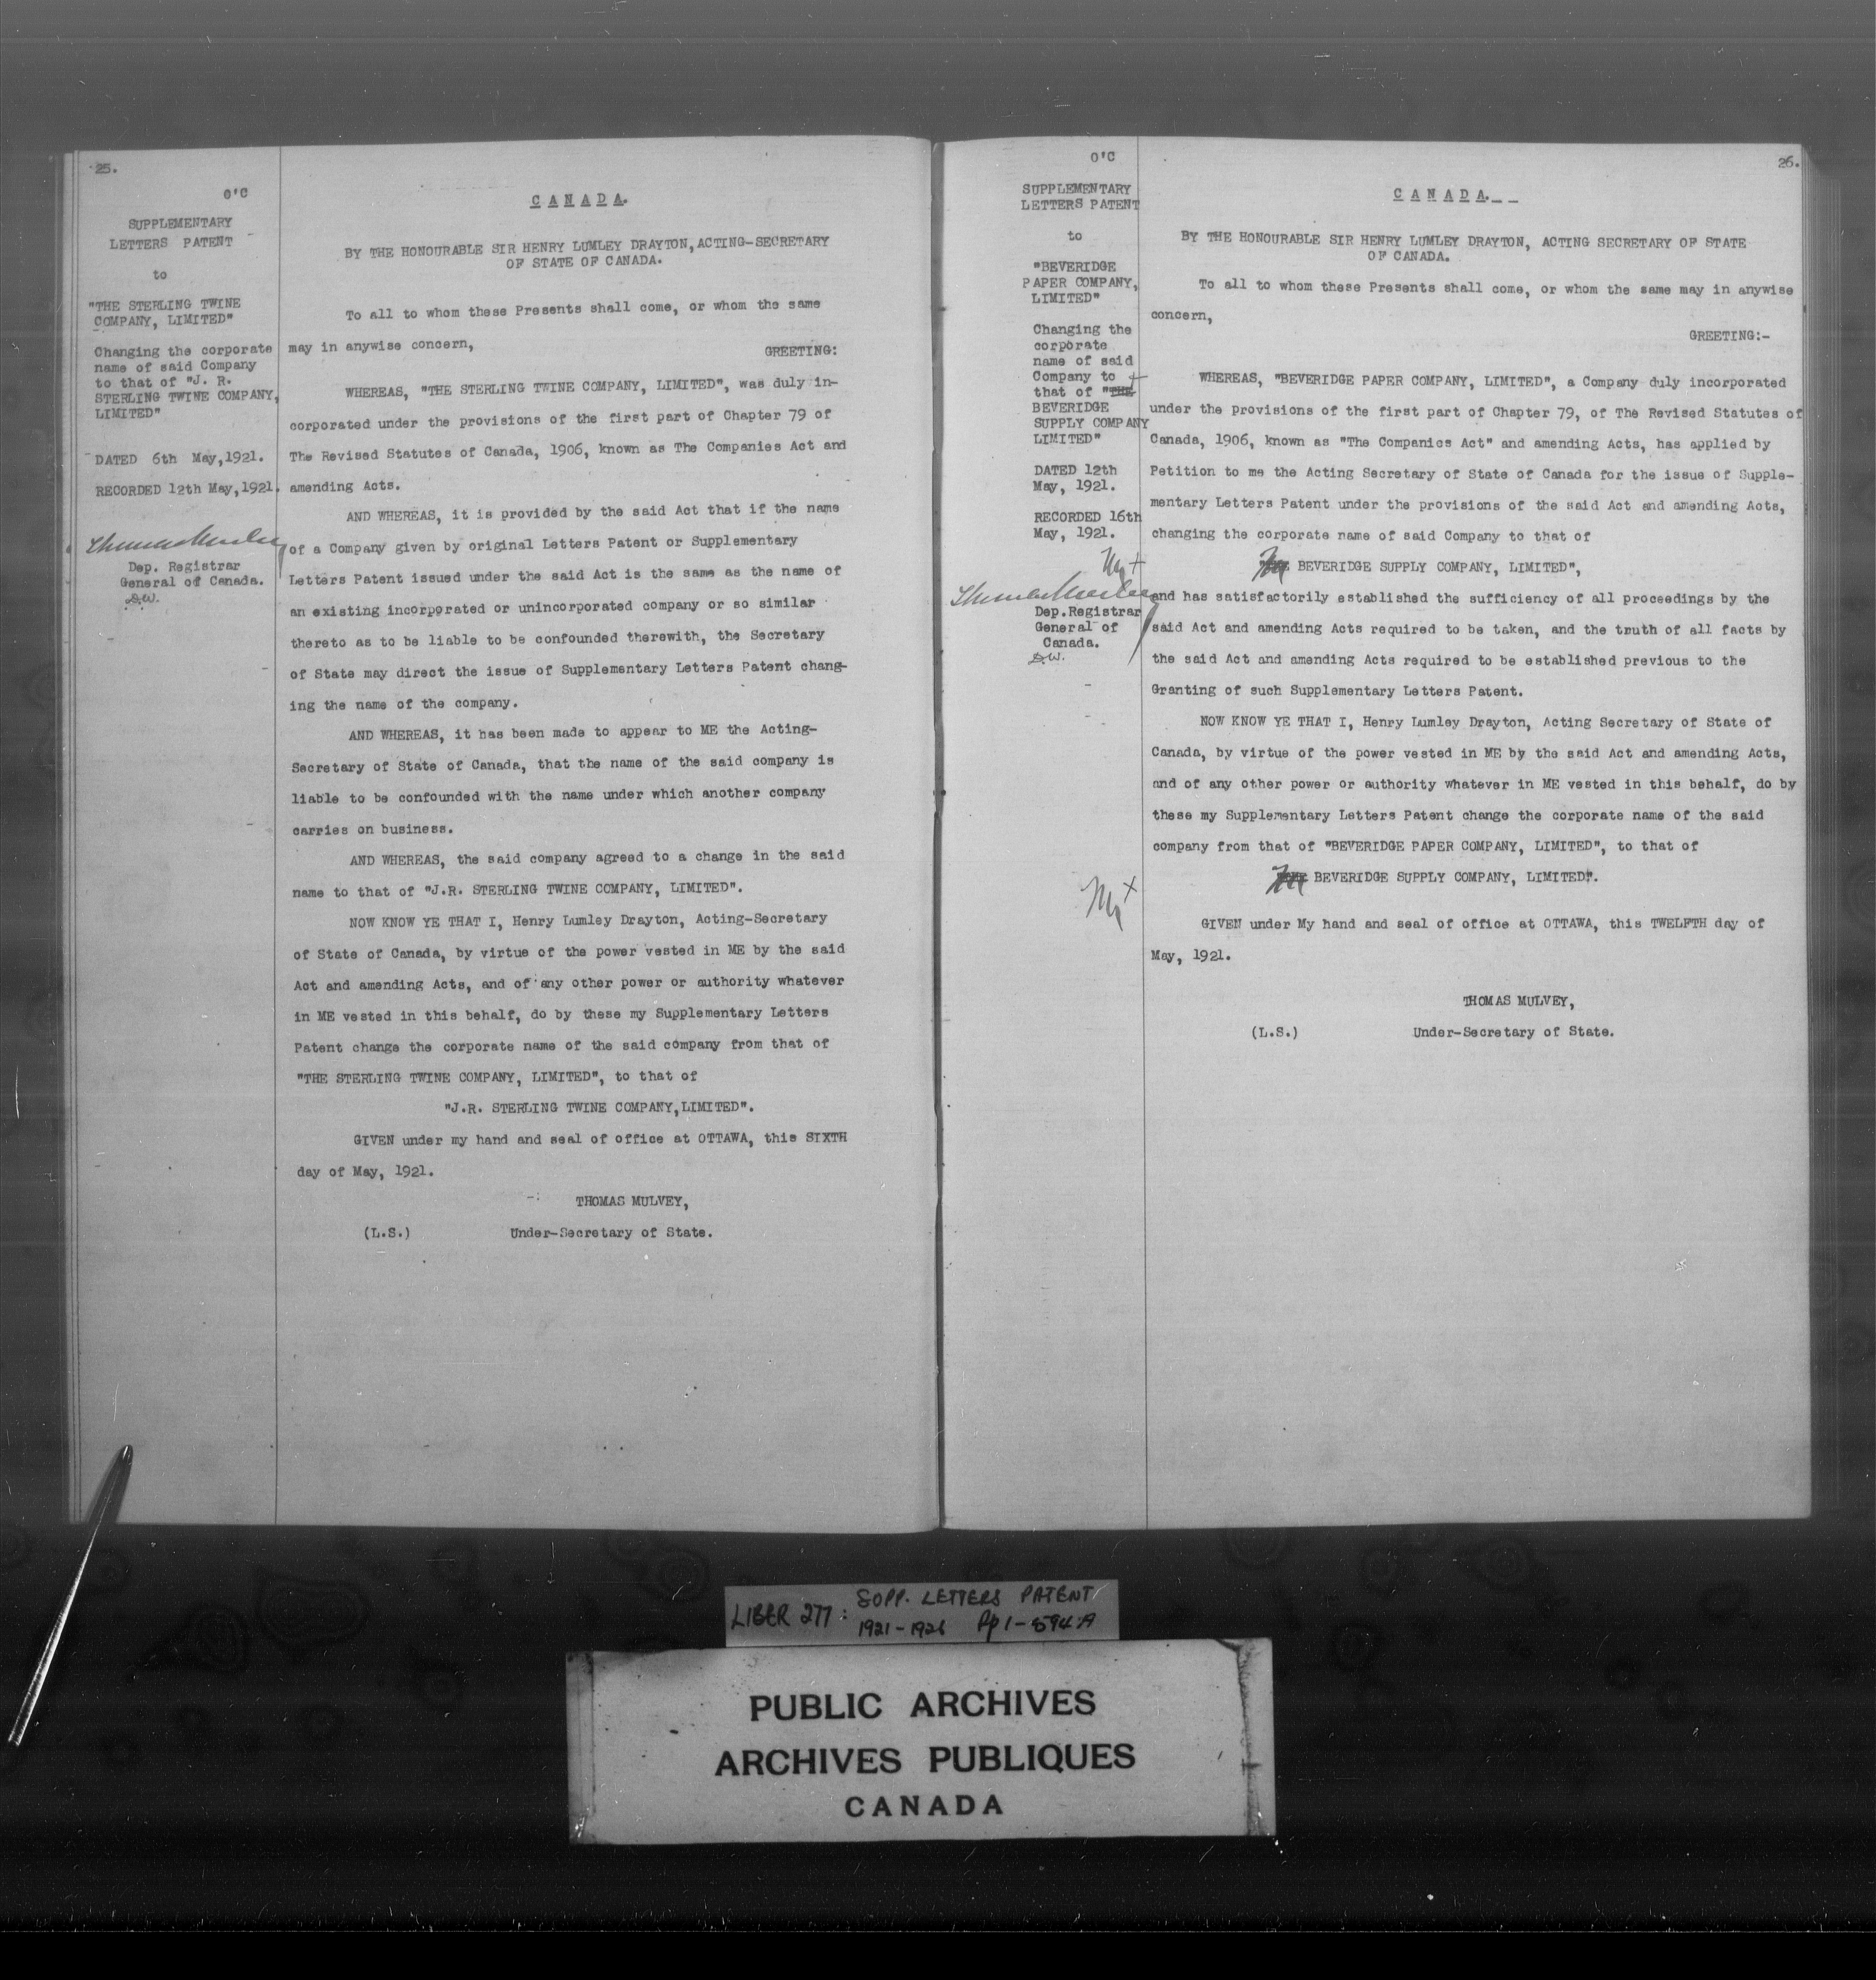 25.
O'C
SUPPLEMENTARY
LETTERS PATENT
to
"THE STERLING TWINE
COMPANY, LIMITED"
Changing the corporate
name of said Company
to that of "J. R.
STERLING TWINE COMPANY,
LIMITED"
DATED 6th May,1921.
RECORDED 12th May,1921.
Dep. Registrar
General of Canada.
D.W.
CANADA.
BY THE HONOURABLE SIR HENRY LUMLEY DRAYTON, ACTING-SECRETARY
OF STATE OF CANADA.
To all to whom these Presents shall come, or whom the same
may in anywise concern,
GREETING:
WHEREAS, "THE STERLING TWINE COMPANY, LIMITED", was duly in-
corporated under the provisions of the first part of Chapter 79 of
The Revised Statutes of Canada, 1906, known as The Companies Act and
amending Acts.
AND WHEREAS, it is provided by the said Act that if the name
of a Company given by original Letters Patent or Supplementary
Letters Patent issued under the said Act is the same as the name of
an existing incorporated or unincorporated company or so similar
thereto as to be liable to be confounded therewith, the Secretary
of State may direct the issue of Supplementary Letters Patent chang-
ing the name of the company.
AND WHEREAS, it has been made to appear to ME the Acting-
Secretary of State of Canada, that the name of the said company is
liable to be confounded with the name under which another company
carries on business.
AND WHEREAS, the said company agreed to a change in the said
name to that of "J.R. STERLING TWINE COMPANY, LIMITED".
NOW KNOW YE THAT I, Henry Lumley Drayton, Acting-Secretary
of State of Canada, by virtue of the power vested in ME by the said
Act and amending Acts, and of any other power or authority whatever
in ME vested in this behalf, do by these my Supplementary Letters
Patent change the corporate name of the said company from that of
"THE STERLING TWINE COMPANY, LIMITED", to that of
"J.R. STERLING TWINE COMPANY,LIMITED".
GIVEN under my hand and seal of office at OTTAWA, this SIXTH
day of May, 1921.
THOMAS MULVEY,
(L.S.) Under-Secretary of State.
26.
O'C
SUPPLEMENTARY
LETTERS PATENT
to
"BEVERIDGE
PAPER COMPANY,
LIMITED"
Changing the
corporate
name of said
Company to
that of "THE
BEVERIDGE
SUPPLY COMPANY
LIMITED"
DATED 12th
May, 1921.
RECORDED 16th
May, 1921.
Dep.Registrar
General of
Canada.
D.W.
CANADA.
BY THE HONOURABLE SIR HENRY LUMLEY DRAYTON, ACTING SECRETARY OF STATE
OF CANADA.
To all to whom these Presents shall come, or whom the same may in anywise
concern,
GREETING:-
WHEREAS, "BEVERIDGE PAPER COMPANY, LIMITED", a Company duly incorporated
under the provisions of the first part of Chapter 79, of The Revised Statutes of
Canada, 1906, known as "The Companies Act" and amending Acts, has applied by
Petition to me the Acting Secretary of State of Canada for the issue of Supple-
mentary Letters Patent under the provisions of the said Act and amending Acts,
changing the corporate name of said Company to that of
BEVERIDGE SUPPLY COMPANY, LIMITED",
and has satisfactorily established the sufficiency of all proceedings by the
said Act and amending Acts required to be taken, and the truth of all facts by
the said Act and amending Acts required to be established previous to the
Granting of such Supplementary Letters Patent.
NOW KNOW YE THAT I, Henry Lumley Drayton, Acting Secretary of State of
Canada, by virtue of the power vested in ME by the said Act and amending Acts,
and of any other power or authority whatever in ME vested in this behalf, do by
these my Supplementary Letters Patent change the corporate name of the said
company from that of "BEVERIDGE PAPER COMPANY, LIMITED", to that of
BEVERIDGE SUPPLY COMPANY, LIMITED".
GIVEN under My hand and seal of office at OTTAWA, this TWELFTH day of
May, 1921.
THOMAS MULVEY,
(L.S.) Under-Secretary of State.
LIBER 277: SUPP. LETTERS PATENT
1921-1926 Pp 1-594A
PUBLIC ARCHIVES
ARCHIVES PUBLIQUES
CANADA